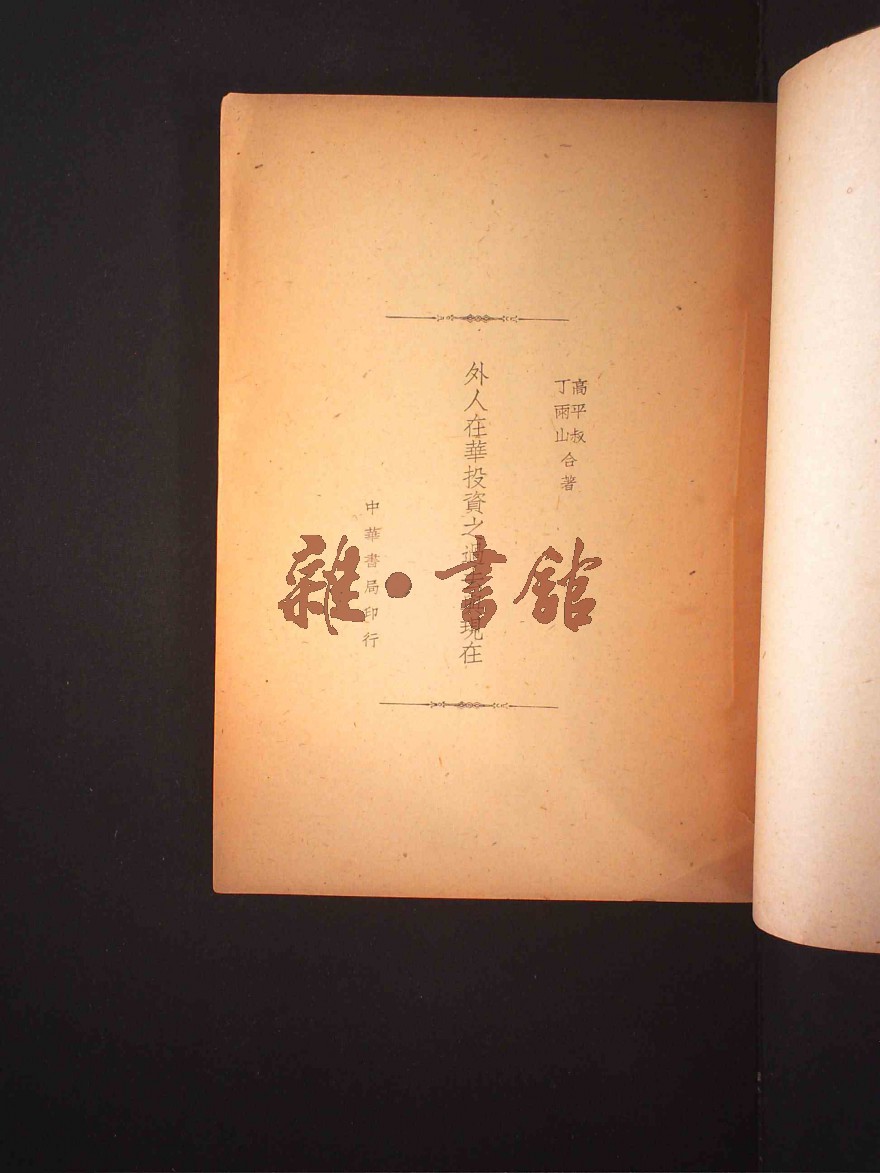 高平叔
丁雨山
合著
外人在華投資之過去與現在
中華書局印行
雜·書館